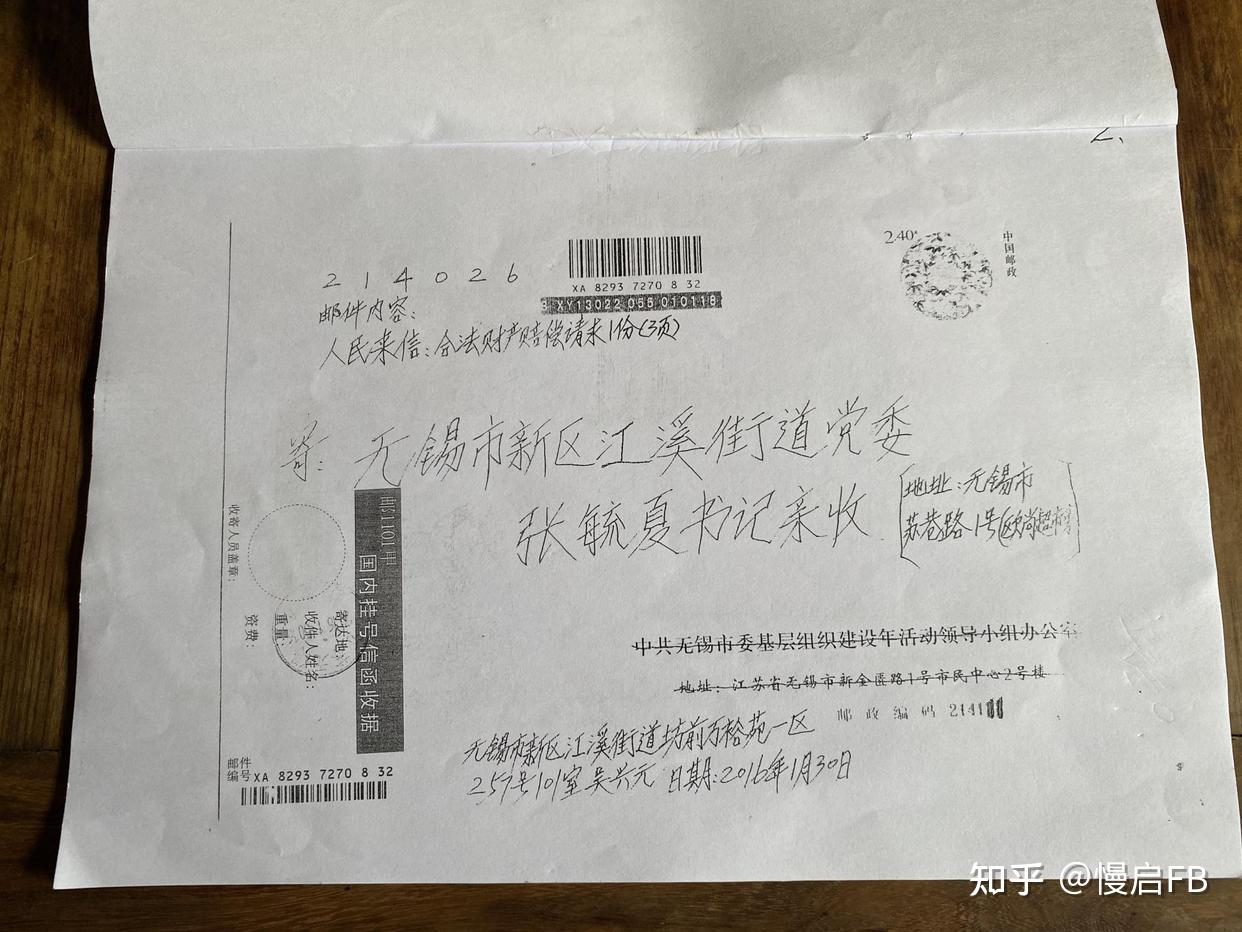 2.
2.40
中国邮政
214026
XA 8293 7270 8 32
XY13022 055 010118
邮件内容:
人民来信:合法财产赔偿请求1份(3页)
寄:无锡市新区江溪街道党委
张毓夏书记亲收
[地址:无锡市
苏巷路1号(欧尚超市
中共无锡市委基层组织建设年活动领导小组办公室
地址:江苏省无锡市新金匮路1号市民中心2号楼
邮政编码 2141
无锡市新区江溪街道坊前万裕苑一区
257号101室吴兴元 日期:2016年1月30日
邮1101甲
国内挂号信函收据
寄达地:
收件人姓名:
重量:
资费:
收寄人员盖章:
邮件
编号 XA 8293 7270 8 32
知乎 @慢启FB